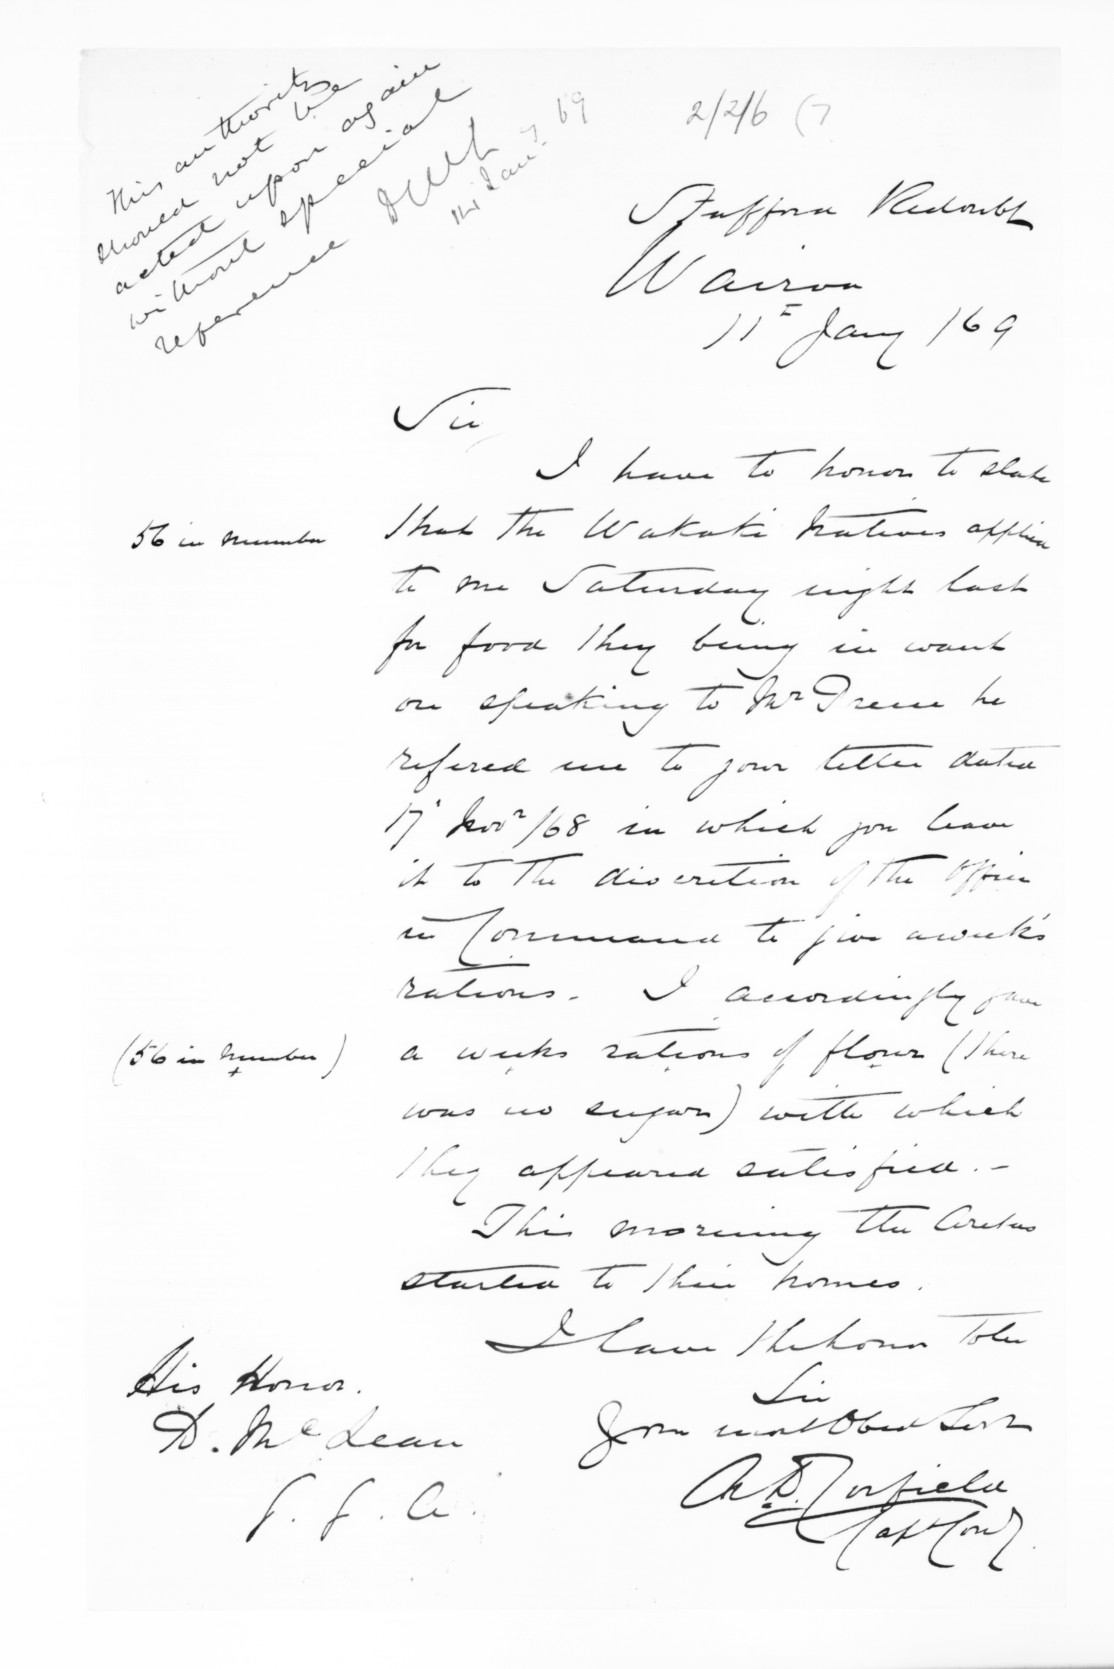 This authority
should not be
acted upon again
without special
reference DMcL
Jany 69
2/2/6 (7
Stafford Redoubt
Wairoa
11th Jany /69
Sir
I have to honor to state
56 in number
that the Wakaki Natives applied
to me Saturday night last
for food they being in want
on speaking to Mr he
refered me to your letter dated
17' Novr /68 in which you leave
it to the discretion of the Officer
in Command to give a week's
rations. I accordingly gave
(56 in Number)
a weeks rations of flour (there
was no sugar) with which
they appeared satisfied. -
This morning the
started to their homes.
I have the honor to be
Sir
Your most Obed Servt
Corfield
Capt Comg
His Honor.
D. McLean
G. G. A.